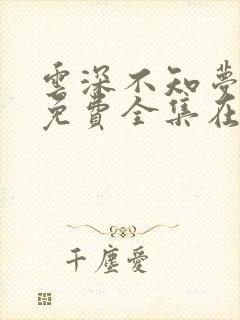 雲深不知夢
免費全集在
千塵愛